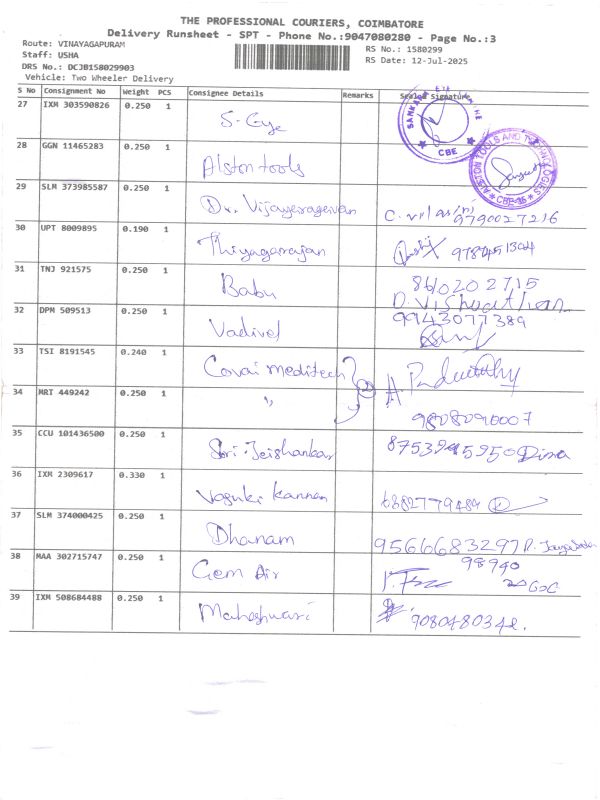 THE PROFESSIONAL COURIERS, COIMBATORE
Delivery Runsheet - SPT - Phone No.:9047080280 - Page No.:3
Route: VINAYAGAPURAM
Staff: USHA
DRS No.: DCJB158029903
Vehicle: Two Wheeler Delivery
RS No.: 1580299
RS Date: 12-Jul-2025
S No Consignment No Weight PCS Consignee Details Remarks Sealed Signature
27 IXM 303590826 0.250 1 S-Eye
CBE
28 GGN 11465283 0.250 1 Alston tools
ALSTON TOOLS AND TECHNOLOGIES
29 SLM 373985587 0.250 1 Dr. Vijayaragavan 9790027216
30 UPT 8009895 0.190 1 Thiyagarajan
31 TNJ 921575 0.250 1 Babu 8610202715
32 DPM 509513 0.250 1 Vadivel 9943077389
33 TSI 8191545 0.240 1 Covai Meditech
34 MRT 449242 0.250 1 " 9808090007
35 CCU 101436500 0.250 1 Sri Jeishankar
36 IXM 2309617 0.330 1 Vasuki Kannan
37 SLM 374000425 0.250 1 Dhanam 9566683297
38 MAA 302715747 0.250 1 Gem Air 98940
39 IXM 508684488 0.250 1 Maheshwari